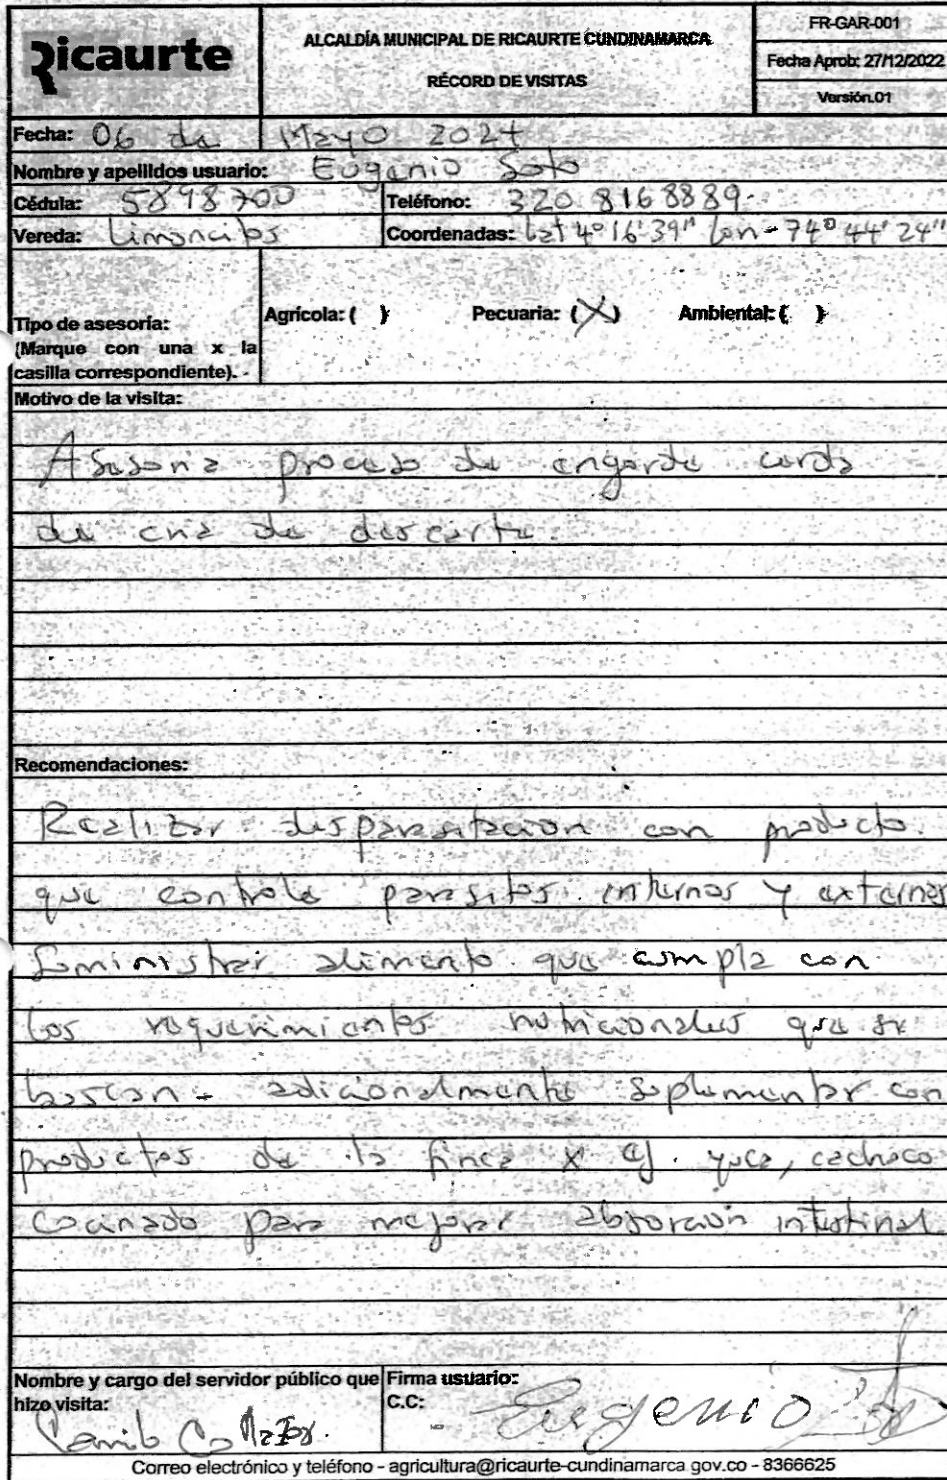 Ricaurte
ALCALDÍA MUNICIPAL DE RICAURTE CUNDINAMARCA
RÉCORD DE VISITAS
FR-GAR-001
Fecha Aprob: 27/12/2022
Versión.01
Fecha: 06 de Mayo 2024
Nombre y apellidos usuario: Eugenio Soto
Cédula: 5898700 Teléfono: 320 8168889.
Vereda: Limoncitos Coordenadas: Lat 4° 16' 39" Lon - 74° 44' 24"
Tipo de asesoría:
(Marque con una x la
casilla correspondiente).
Agrícola: ( ) Pecuaria: (X) Ambiental: ( )
Motivo de la visita:
Asesoria proceso de engorde cerda
de cria de descarte.
Recomendaciones:
Realizar desparasitacion con producto.
que controle parasitos internos y externos
Suministrar alimento que cumpla con
los requerimientos nutricionales que se
buscan - adicionalmente suplementar con
productos de la finca x ej. yuca, cachaco
cocinado para mejorar absorción intestinal
Nombre y cargo del servidor público que
hizo visita:
Camilo
Firma usuario:
C.C:
Eugenio
Correo electrónico y teléfono - agricultura@ricaurte-cundinamarca.gov.co - 8366625